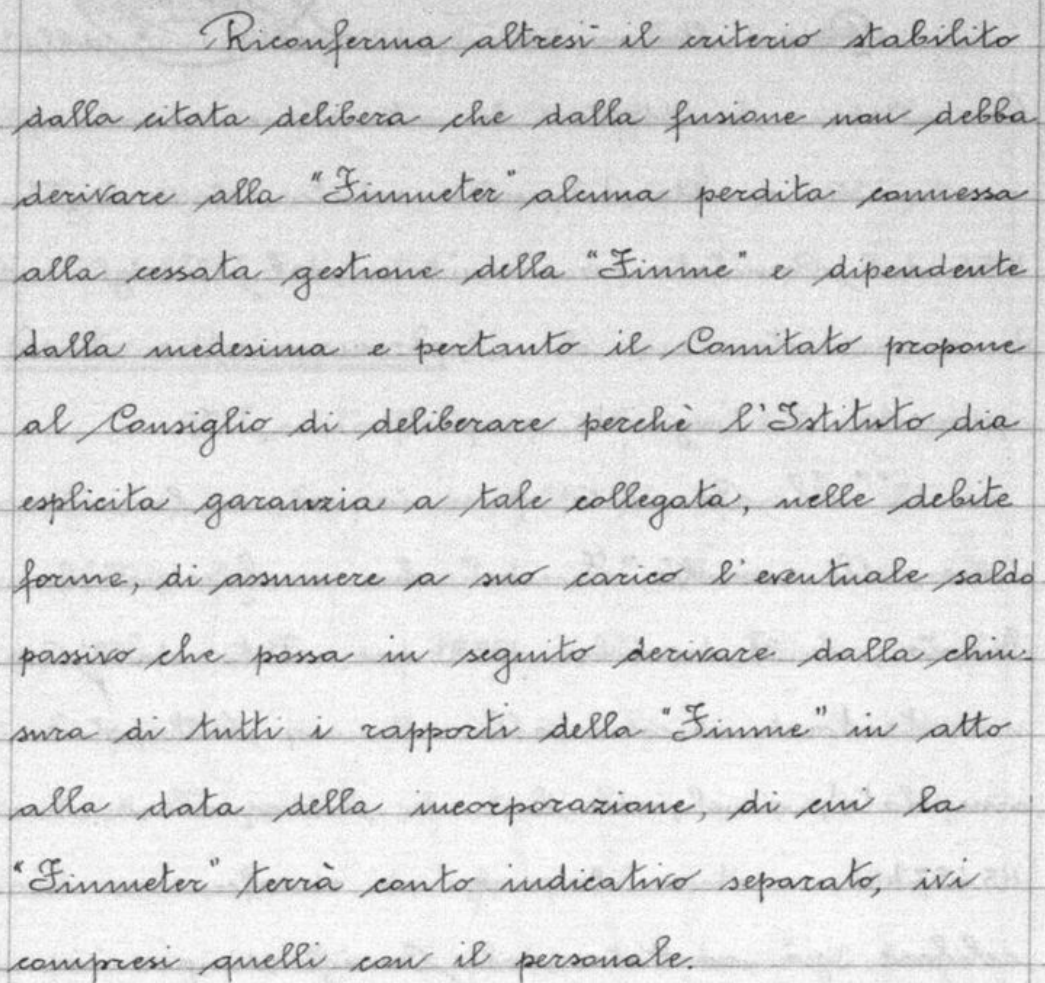 Riconferma altresì il criterio stabilito
dalla citata delibera che dalla fusione non debba
derivare alla "Finmeter" alcuna perdita connessa
alla cessata gestione della "Finme" e dipendente
dalla medesima e pertanto il Comitato propone
al Consiglio di deliberare perchè l'Istituto dia
esplicita garanzia a tale collegata, nelle debite
forme, di assumere a suo carico l'eventuale saldo
passivo che possa in seguito derivare dalla chiu-
sura di tutti i rapporti della "Finme" in atto
alla data della incorporazione, di cui la
"Finmeter" terrà conto indicativo separato, ivi
compresi quelli con il personale.